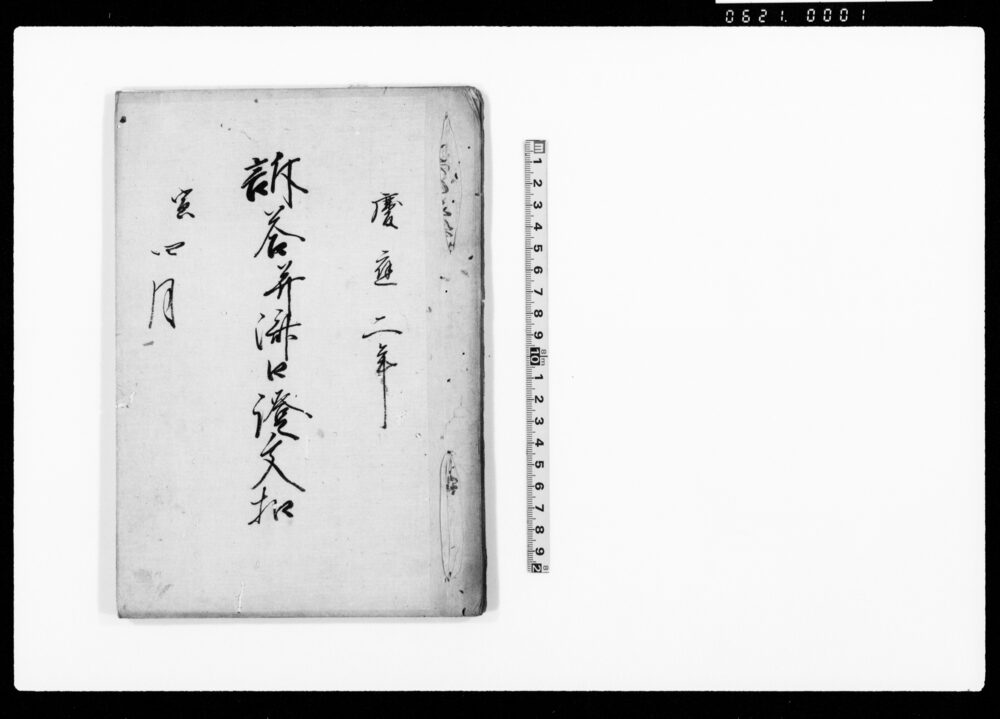 0621.0001
慶應二年
訴答并済口證文扣
寅四月
1 2 3 4 5 6 7 8 9 10 1 2 3 4 5 6 7 8 9 2